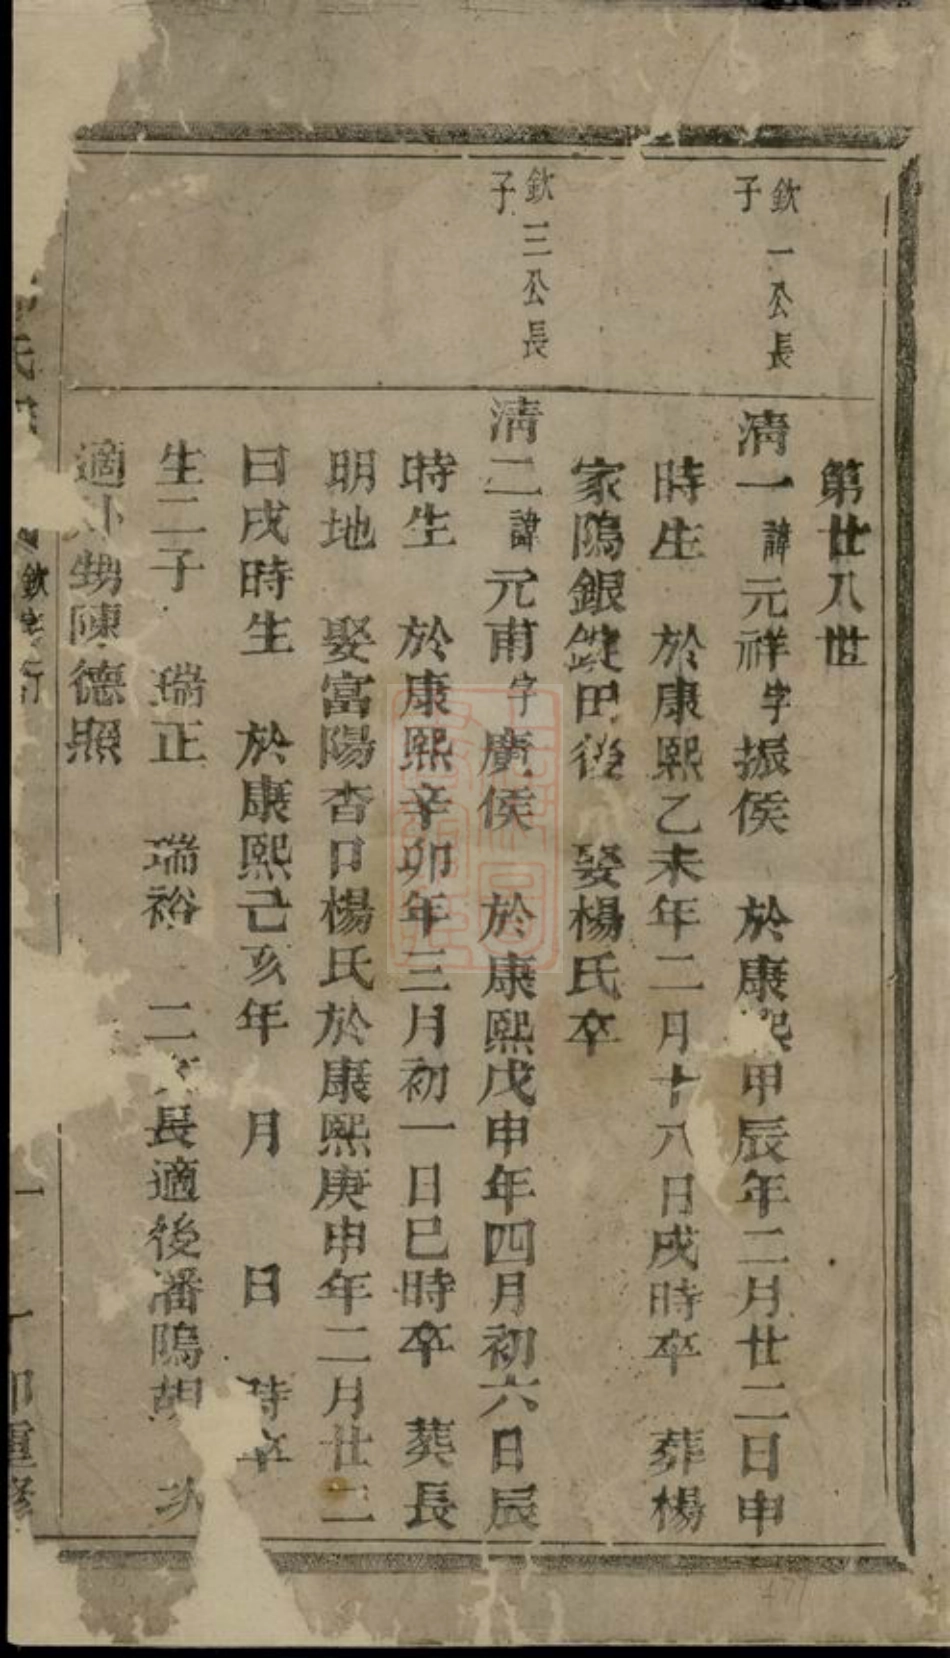 第廿八世
欽一公長
子
清一諱元祥字振侯 於康熙甲辰年二月廿二日申
時生 於康熙乙未年二月十八日戌時卒 葬楊
家隖銀錠田後 娶楊氏卒
欽三公長
子
清二諱元甫字廣侯 於康熙戊申年四月初六日辰
時生 於康熙辛卯年三月初一日巳時卒 葬長
明地 娶富陽杳口楊氏於康熙庚申年二月廿二
日戌時生 於康熙己亥年 月 日 時卒
生二子 瑞正 瑞裕 二 長適後潘隖胡 次
適 甥陳德照
氏
欽 行
重修